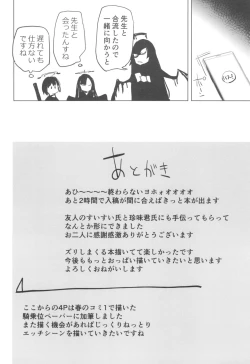 先生と
合流したので
一緒に向かうと
先生と
会ったんすね
遅れても
仕方ない
ですね
あとがき
あひ〜〜〜〜終わらないヨホォオオオオ
あと2時間で入稿が間に合えばきっと本が出ます
友人のすいすい氏と珍味君氏にも手伝ってもらって
なんとか形にできました
お二人に感謝感激ありがとうございます
ズリしまくる本描いてて楽しかったです
今後ももっとおっぱい描いていきたいと思います
よろしくおねがいします
ここからの4Pは春のコミ1で描いた
騎乗位ペーパーに加筆しました
また描く機会があればじっくりねっとり
エッチシーンを描いていきたいですね